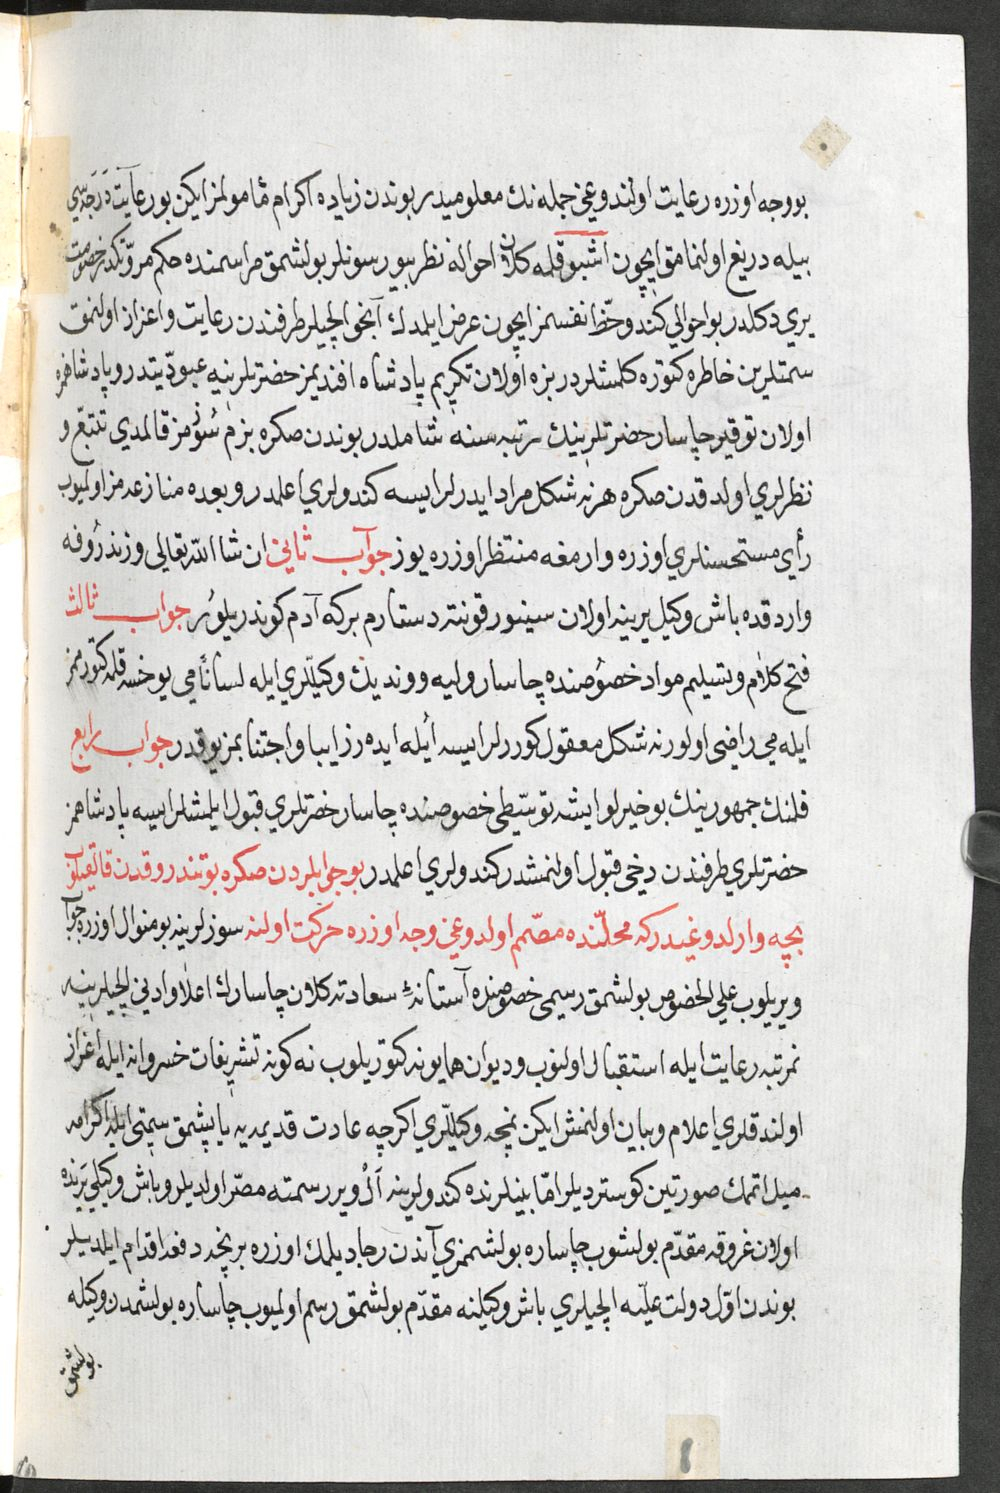 بو وجه اوزره رعايت اولندوغى جمله نك معلوميدر بوندن زياده اكرام مأمولمز ايكن بو رعايت درجه سى
بيله دريغ اولنمامق ايچون اشبو قلمه كلان احواله نظر بيورسونلر بولشمق مراسمنده حكم مروتكدر خصومت
يرى دكلدر بو احوالى كندو حظ نفسمز ايچون عرض ايلمدك آنجق ايلچيلر طرفندن رعايت و اعزاز اولنمق
سمتلرين خاطره كتوره كلمشلردر بزه اولان تكريم پادشاه افنديمز حضرتلرينه عبوديتدر و پادشاهمزه
اولان توقير چاسار حضرتلرينك رتبه سنه شاملدر بوندن صكره بزم سوزمز قالمدى تتبع و
نظرلرى اولدقدن صكره هر نه شكل مراد ايدرلر ايسه كندولرى اعلمدر و بعده منازعه مز اولميوب
رأى مستحسنلرى اوزره وارمغه منتظر اوزره يوز جواب ثانى ان شا الله تعالى وزنذروفه
واردقده باش وكيل يرينه اولان سينور قونته دستارم بركه آدم كوندريلور جواب ثالث
فتح كلام و تسليم مواد خصوصنده چاسار و ليه و ونديك وكيللرى ايله لساناً مى يوخسه قلمه كتورمز
ايله مى راضى اولور نه شكل معقول كوررلر ايسه أيله ايده رز ابا و اجتنابمز يوقدر جواب رابع
فلمنك جمهورينك بو خيرلو ايشه توسطى خصوصنده چاسار حضرتلرى قبول ايلمشلر ايسه پادشاهمز
حضرتلرى طرفندن دخى قبول اولنمشدر كندولرى اعلمدر بو جوابلردن صكره بوتندروقدن قالقيلوب
بچه وارلدوغيدركه محلنده مصمم اولدوغى وجه اوزره حركت اولنه سوزلرينه بو منوال اوزره جواب
ويريلوب على الخصوص بولشمق رسمى خصوصنده آستانهٔ سعادته كلان چاسارك اعلا و ادنى ايلچيلرينه
نمرتبه رعايت ايله استقبال اولنوب و ديوان همايونه كتوريلوب نه كونه تشريفات خسروانه ايله اعزاز
اولندقلرى اعلام و بيان اولنمش ايكن نمچه وكيللرى اكرچه عادت قديمه يه يا پشمق سمتى ايله اكرامه
ميل اتمك صورتين كوسترديلر اما بينلرنده كندولرينه آل و يرر رسمته مصر اولديلر و باش وكيلى يرنده
اولان غروفه مقدم بولشوب چاساره بولشمزى آندن رجا ديلمك اوزره بر نچه دفعه اقدام ايلديلر
بوندن اول دولت عليه ايلچيلرى باش وكيلنه مقدم بولشمق رسم اولميوب چاساره بولشمدن وكيله
بولشمق
1